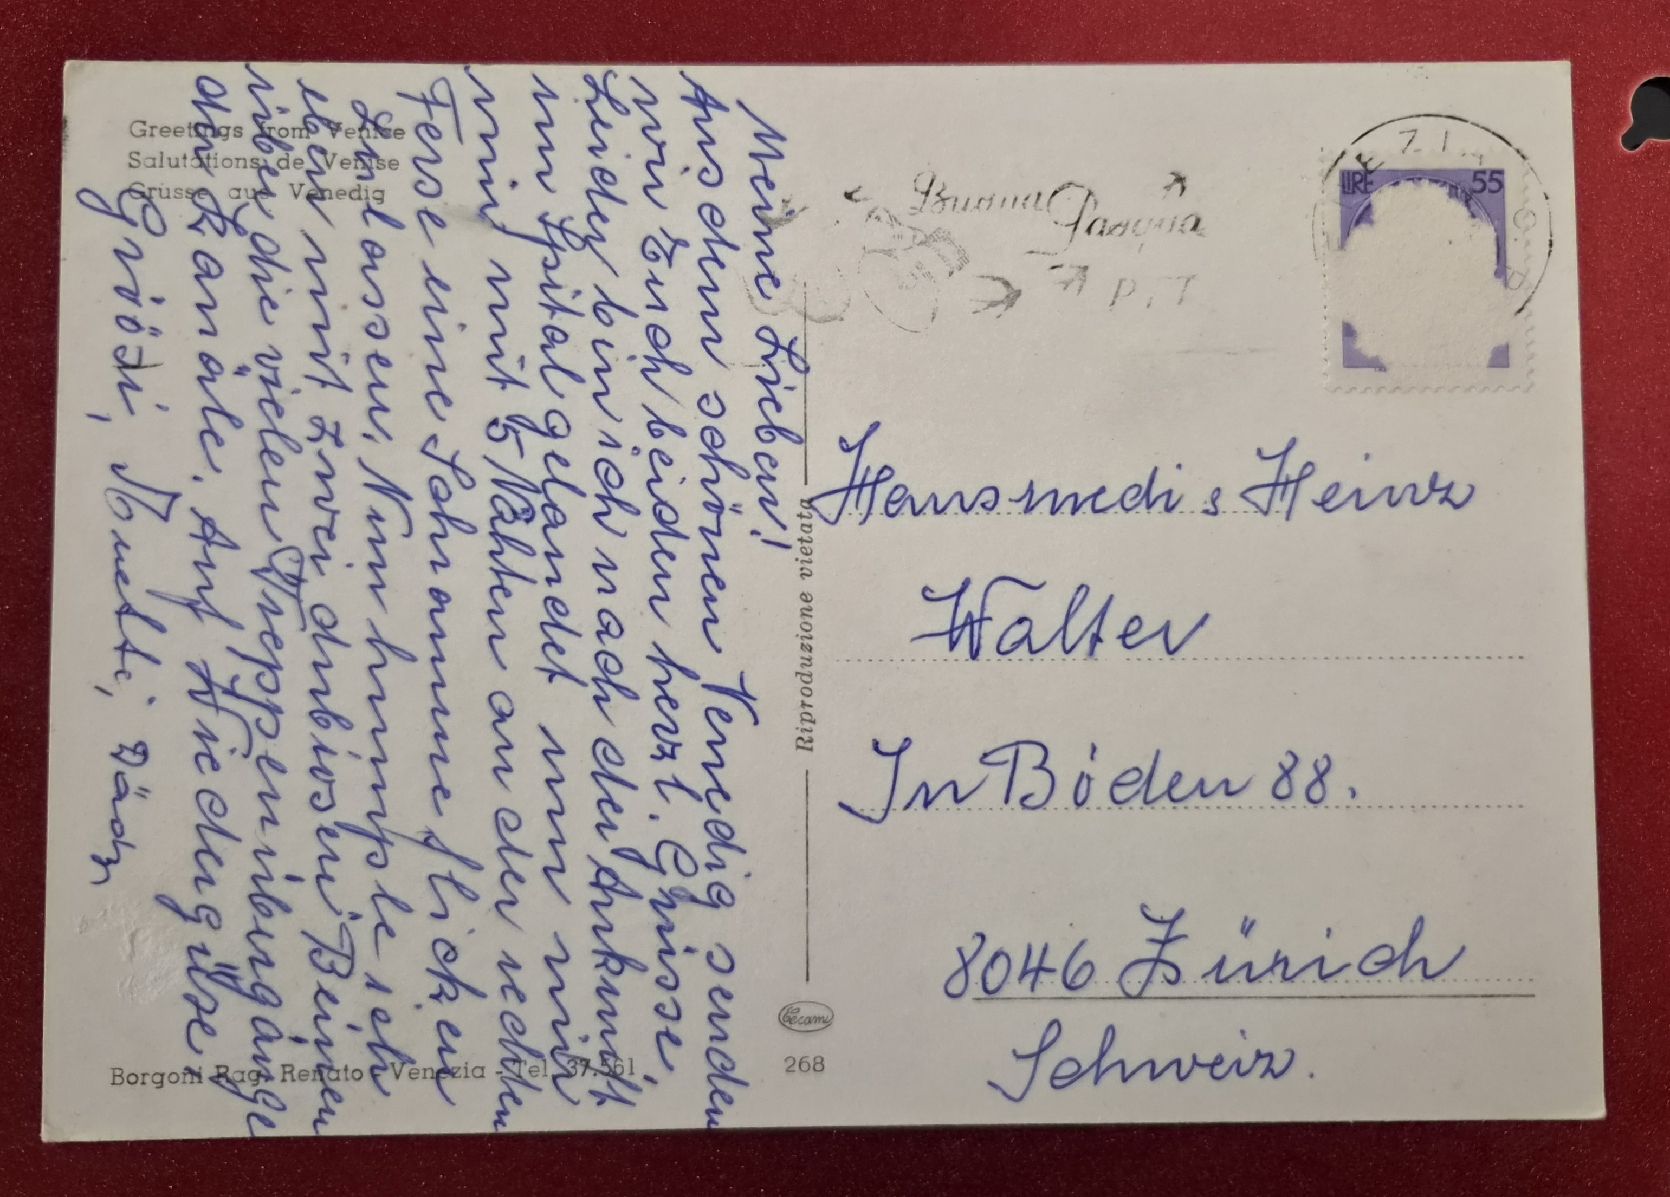 Greetings from Venise
Salutations de Venise
Grüsse aus Venedig
Meine Lieben!
Aus dem schönen Venedig senden
wir Euch beiden herzl. Grüsse,
Leider bin ich nach der Ankunft
im Spital gelandet um mir
mit 5 Nähten an der rechten
Ferse eine Sehne flicken
zu lassen. Nun humple ich
eben mit zwei dubiosen Beinen
über die vielen Treppenübergänge
der Kanäle. Auf Wiedergüxe,
Grööti, Muetti,
Borgoni Rag. Renato - Venezia - Tel. 37.561
Riproduzione vietata
Cecami
268
Buona
Pasqua
P.T.T
LIRE 55
Hansmedi & Heinz
Walter
In Böden 88.
8046 Zürich
Schweiz.